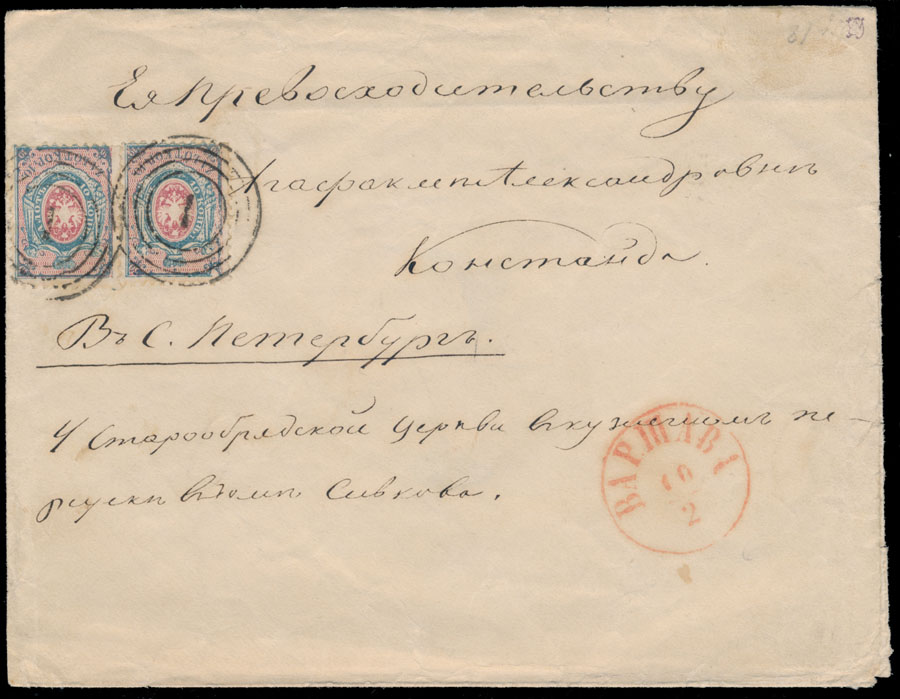 Ея Превосходительству
Александровнѣ
Констанда.
Въ С. Петербургъ.
У Старообрядской церкви въ кузнечномъ пе-
реулкѣ въ домѣ Сивкова.
ВАРШАВА
10
2
1